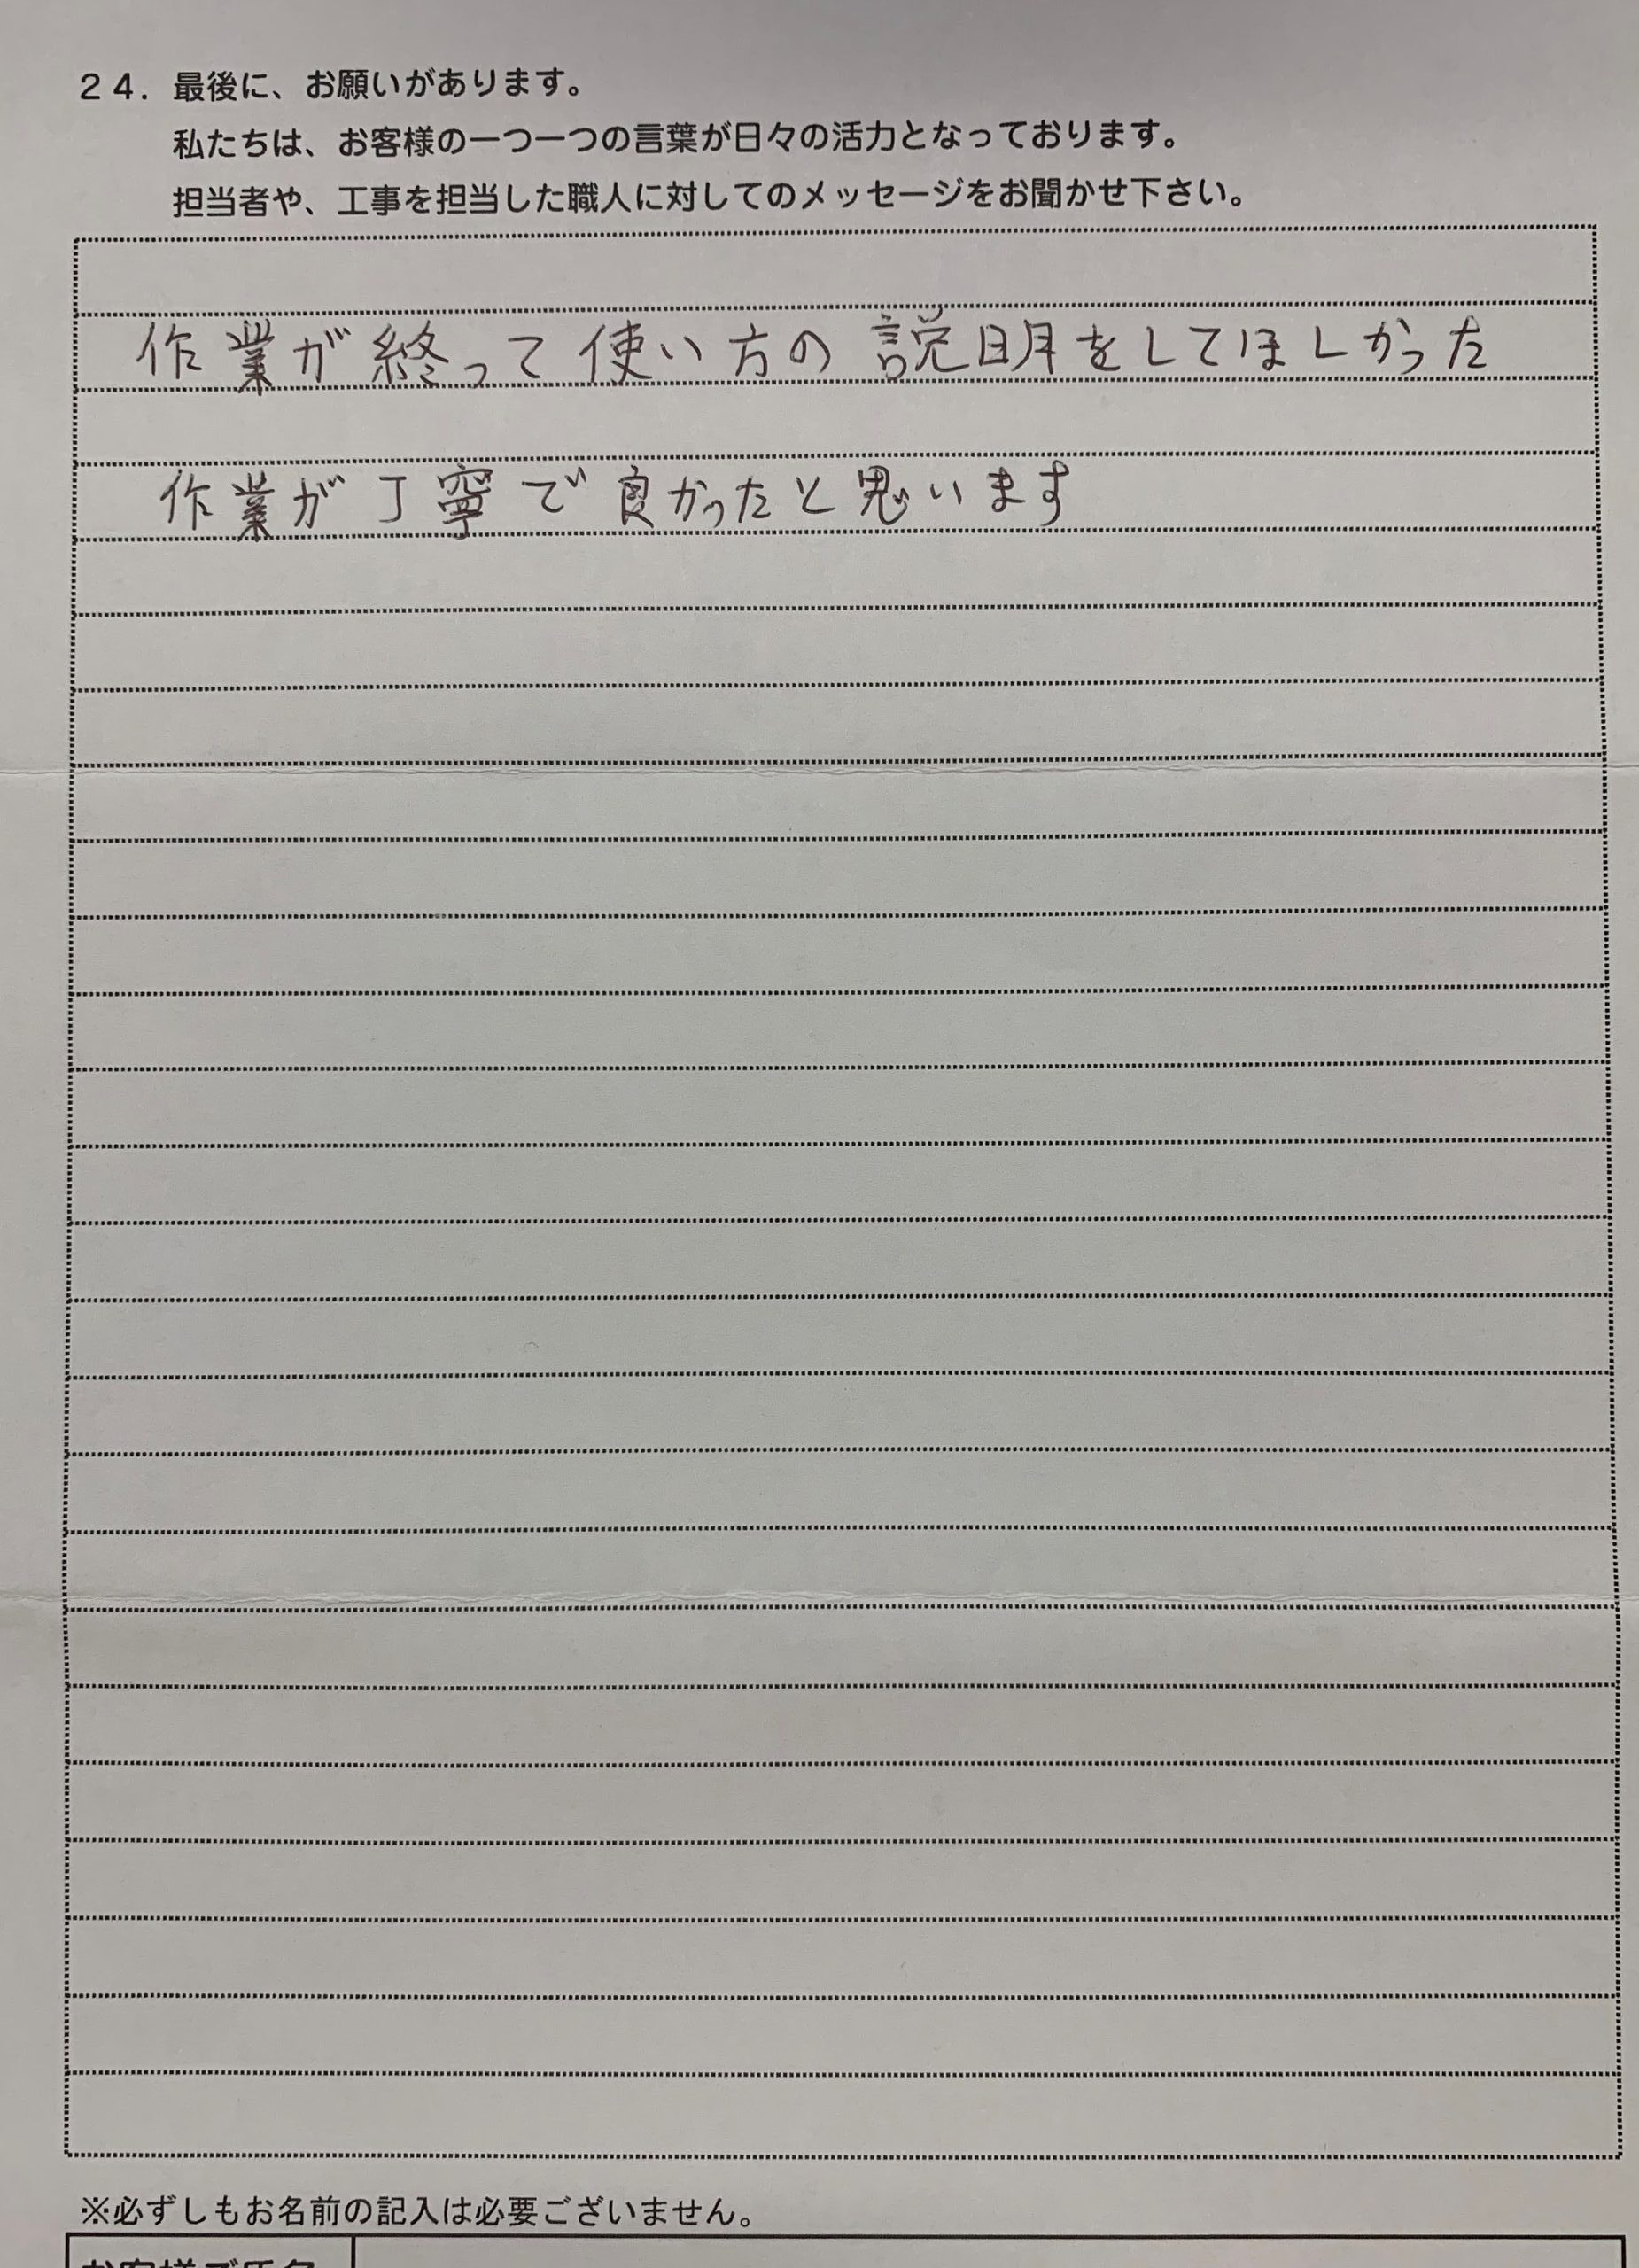 ２４．最後に、お願いがあります。
私たちは、お客様の一つ一つの言葉が日々の活力となっております。
担当者や、工事を担当した職人に対してのメッセージをお聞かせ下さい。
作業が終って使い方の説明をしてほしかった
作業が丁寧で良かったと思います
※必ずしもお名前の記入は必要ございません。
お客様ご氏名